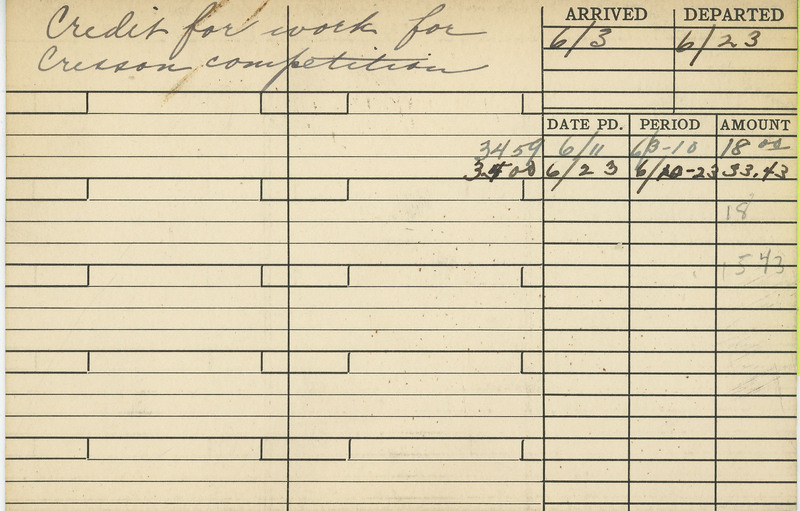 Credit for work for
Cresson competition
ARRIVED DEPARTED
6/3 6/23
DATE PD. PERIOD AMOUNT
3459 6/11 6/3-10 18 00
6/23 6/10-23 33.43
18
15 43